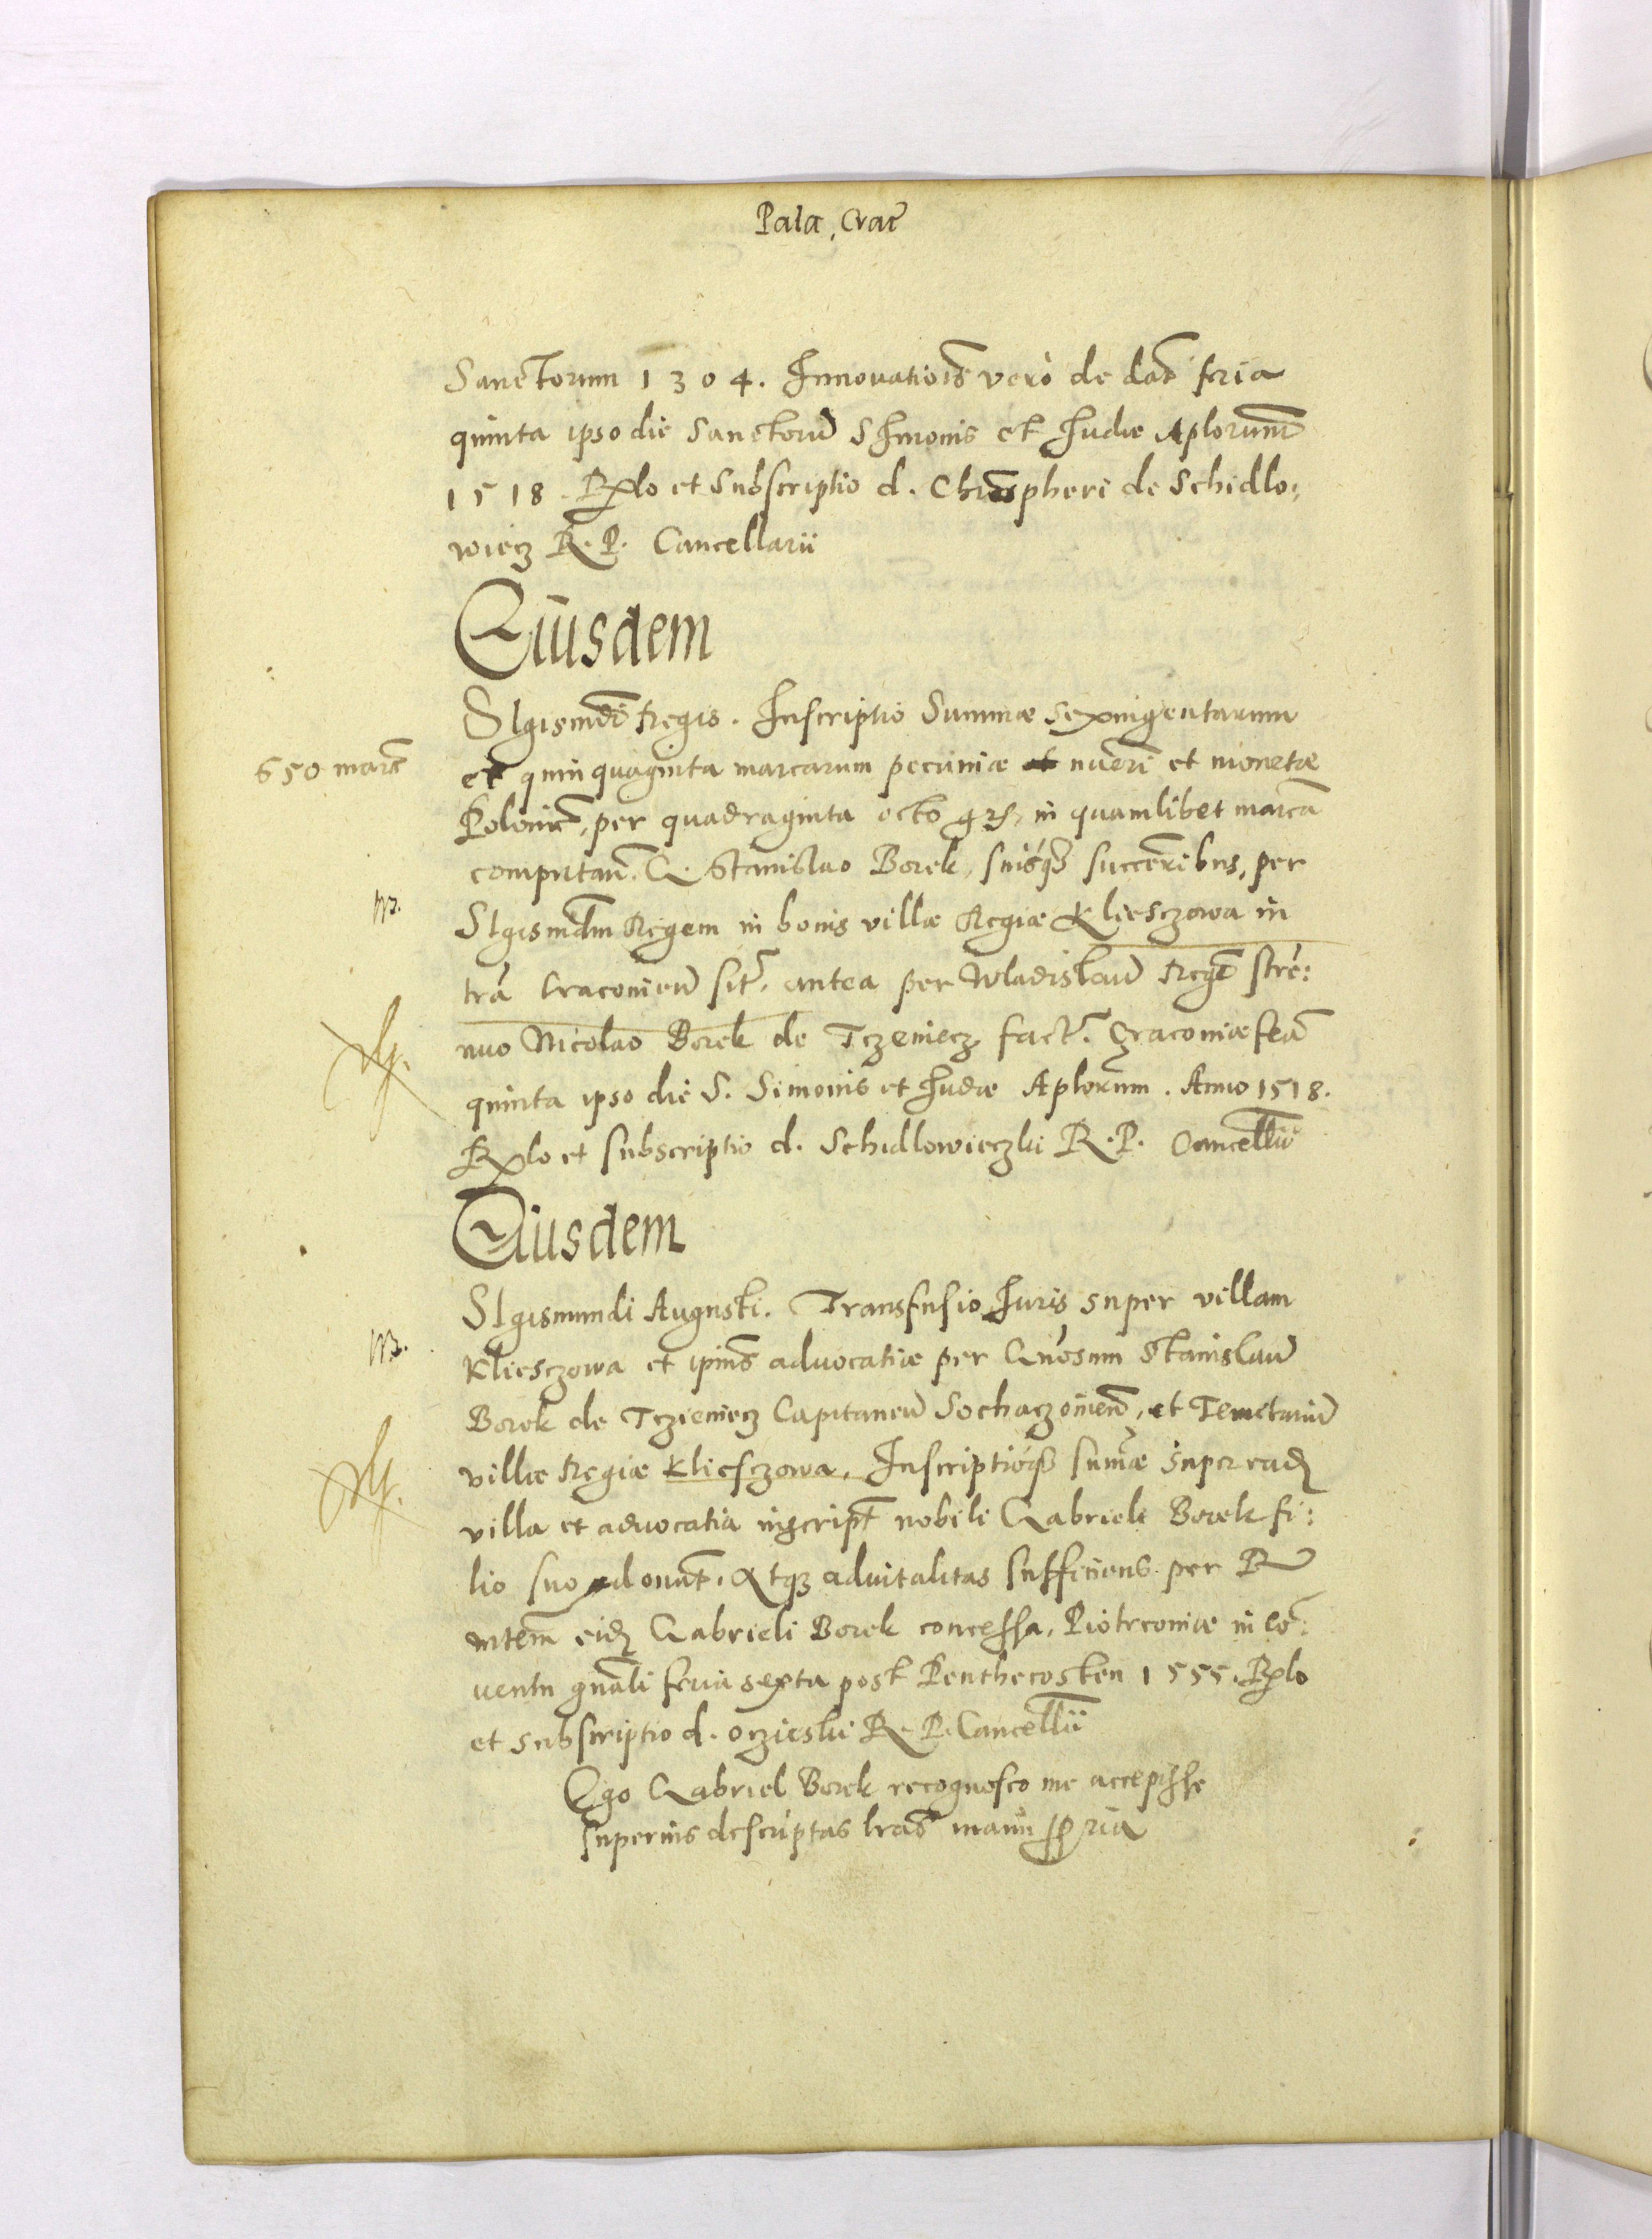 Pala, Crac
Sanctorum 1304. Innovatiois vero de dat feria
quinta ipso die Sanctoru SImonis et Iudæ Aplorum
1518. Rlo et Subscriptio d. Christopheri de Schidlo:
wiecz R. P. Cancellarii
Eiusdem
SIgismdi Regis. Inscriptio Summæ sexingentarum
650 marc
et quinquaginta marcarum pecuniæ nueri et monetæ
Polonic, per quadraginta octo grs, in quamlibet marca
computan. G. Stanislao Borek, suisq3 succeribus, per
SIgismdm Regem in bonis villæ Regiæ Klieszczowa in
tra Cracovien sit. antea per Wladislau Rege stre:
nuo Nicolao Borek de Tczeniecz fact. Cracoviæ fea
quinta ipso die S. Simonis et Iudæ Aplorum. Anno 1518.
Rlo et subscriptio d. Schidlowieczki R. P. Cancellii
Eiusdem
SIgismundi Augusti. Transfusio Iuris super villam
Kliesczowa et ipius advocatiæ per Gnosum Stanislau
Borek de Tczieniecz Capitaneu Sochaczovien, et Tenutariu
villæ Regiæ Kliesczowa, Inscriptioq3 sumæ super ead
villa et advocatia inscript nobili Gabrieli Borek fi:
lio suo donat. Atq3 advitalitas sufficiens per R
mtem eid Gabrieli Borek concessa, Piotrcoviæ in co:
ventu gnali feria sexta post Penthecosten 1555. Rlo
et subscriptio d. oczieski R. P. Cancellii
Ego Gabriel Borek recognosco me accepisse
superius descriptas lras manu ppria